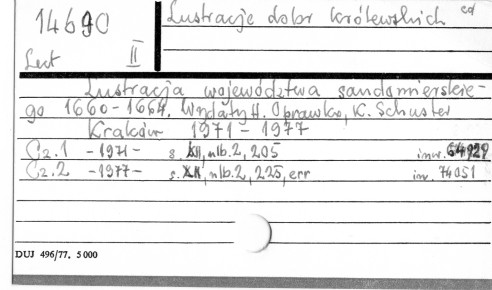 14690
Lect II
Lustracje dóbr królewskich cd
Lustracja województwa sandomierskie-
go 1660-1664. Wydały H. Oprawko, K. Schuster
Kraków 1971-1977
Cz.1 -1971- s. XII, nlb. 2, 205 inw. 64929
Cz.2 -1977- s. XII, nlb. 2, 225, err inw. 74051
DUJ 496/77. 5 000